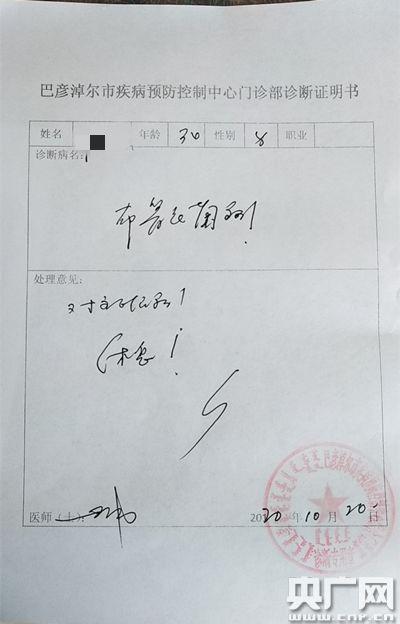 巴彦淖尔市疾病预防控制中心门诊部诊断证明书
姓名 年龄 30 性别 职业
诊断病名:
布鲁氏菌病!
处理意见:
对症治疗!
休息!
医师(士):
2020年10月20日
央广网
www.cnr.cn